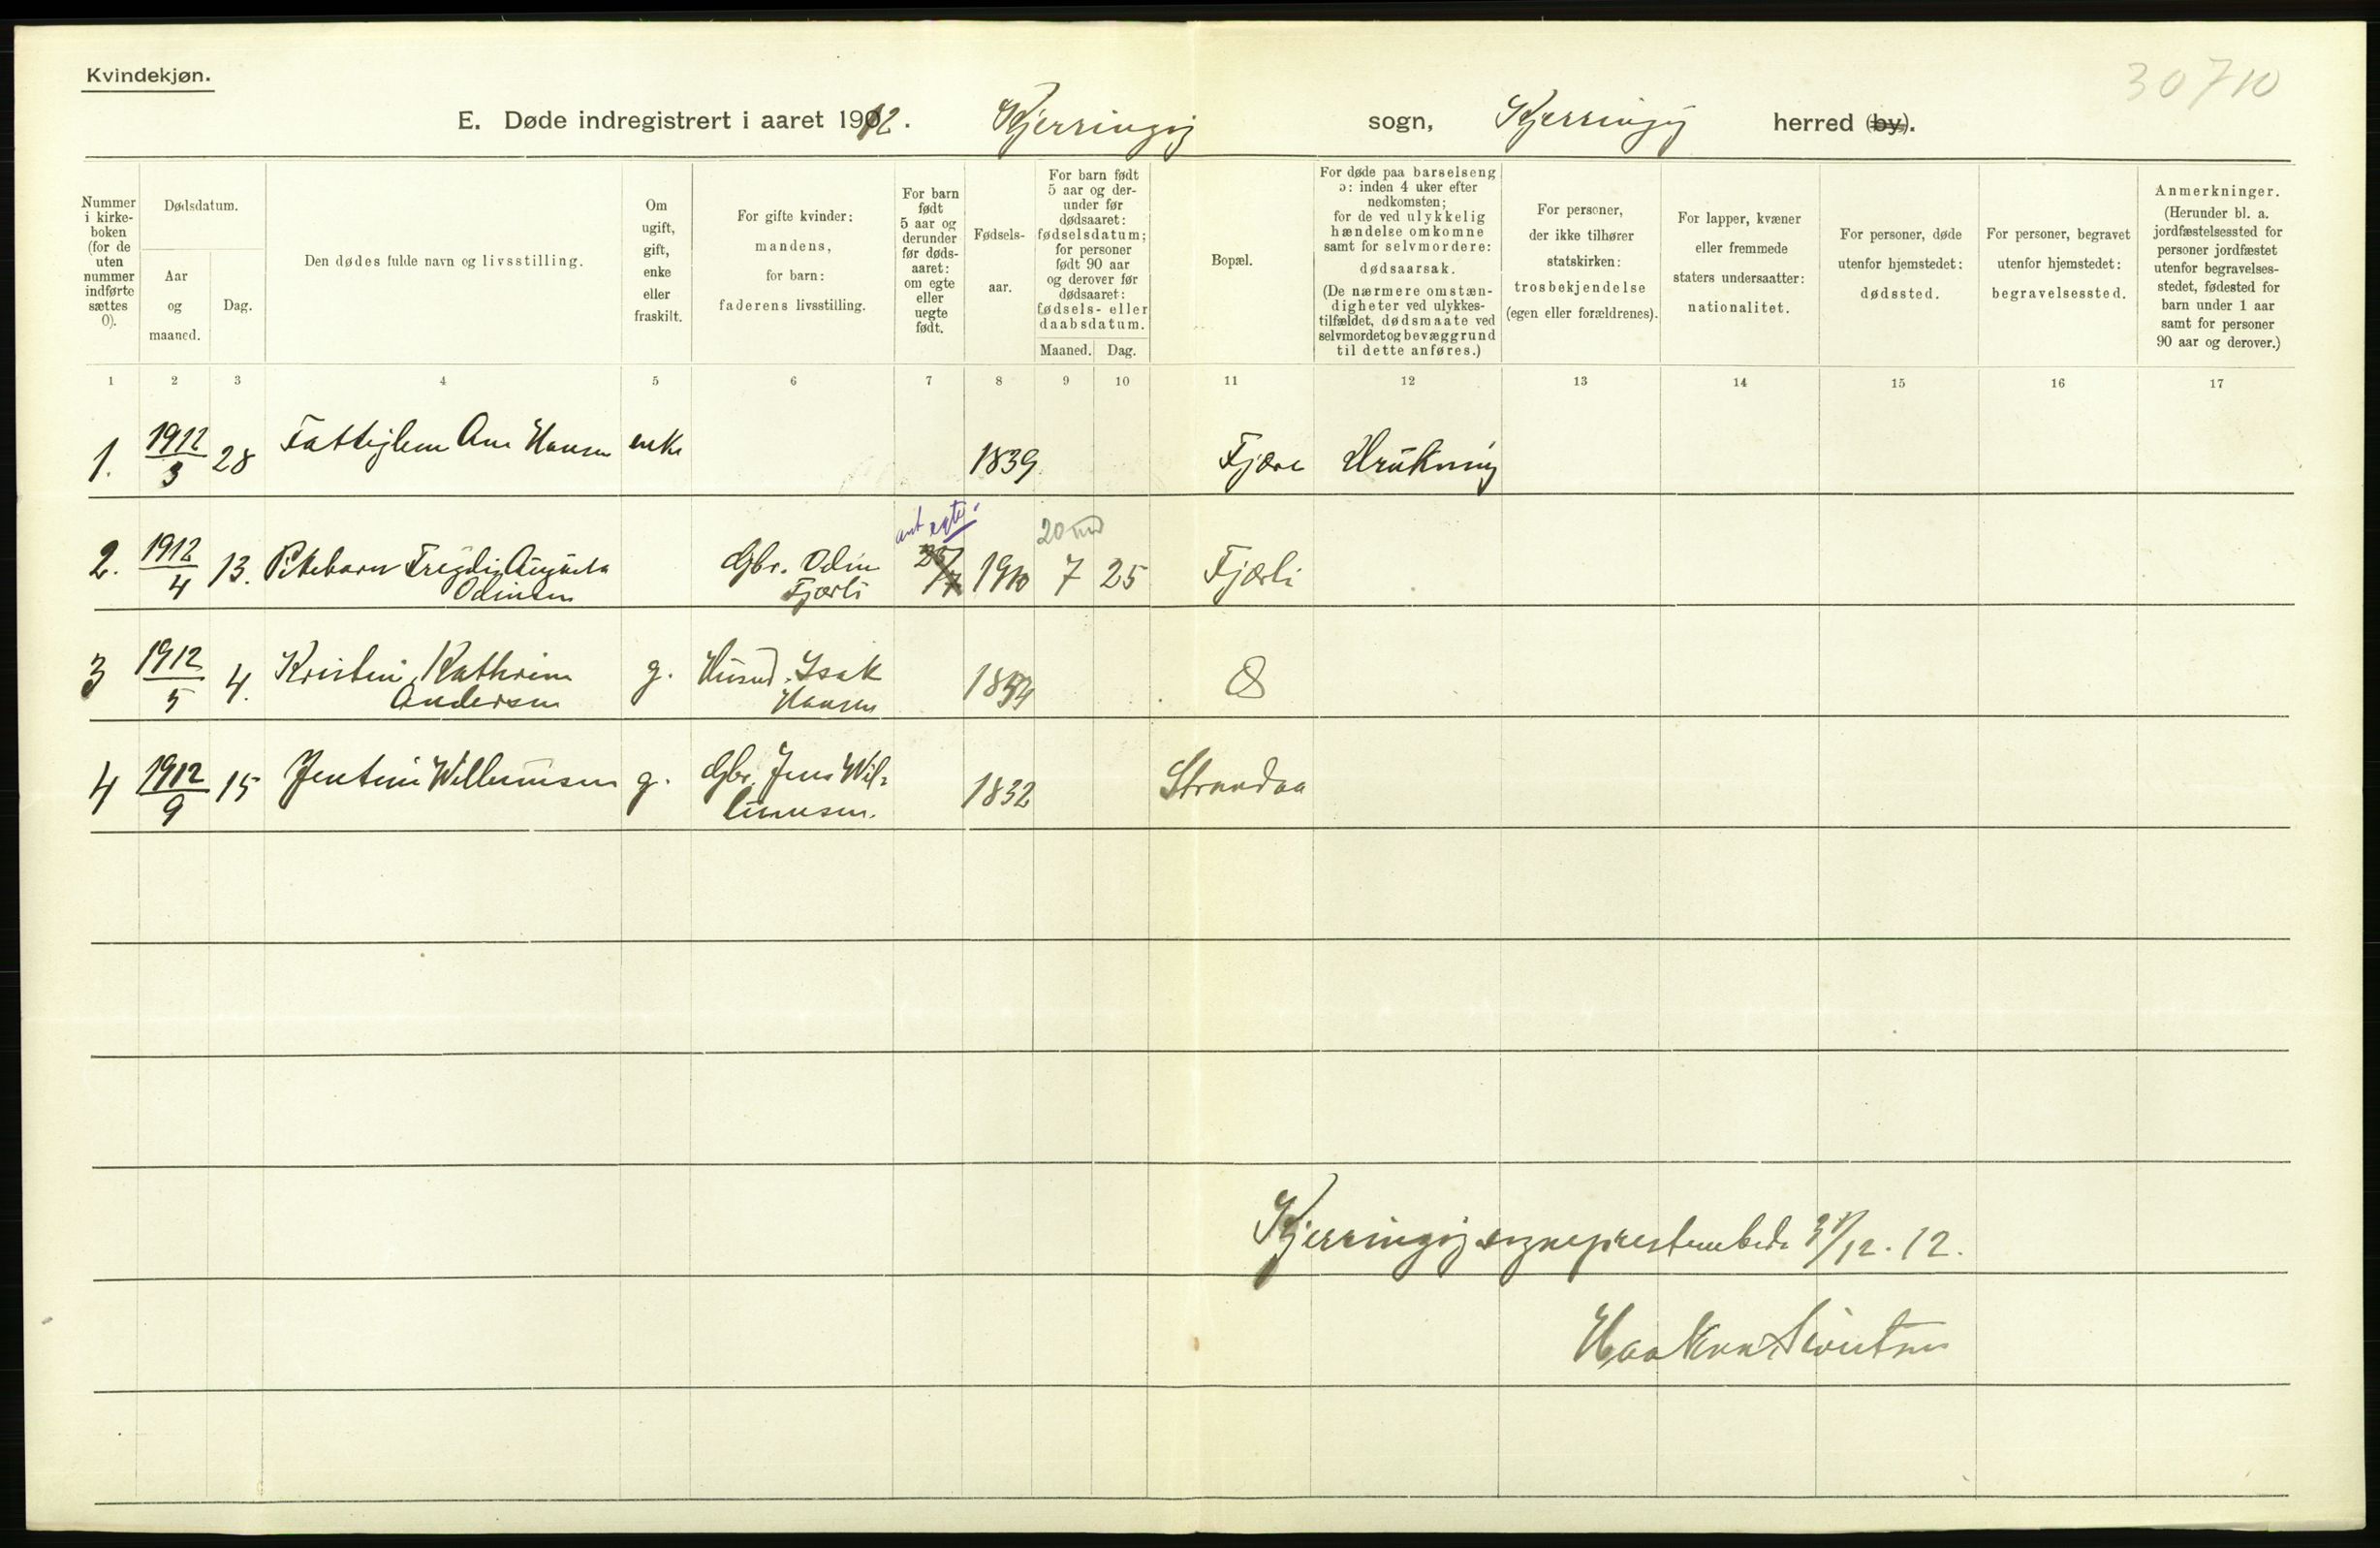 Kvindekjøn.
30710
E. Døde indregistrert i aaret 1912. Kjerringøy sogn, Kjerringøy herred (by).
Nummer i kirke-boken (for de uten nummer indførte sættes 0).
Dødsdatum.
Aar og maaned.
Dag.
Den dødes fulde navn og livsstilling.
Om ugift, gift, enke eller fraskilt.
For gifte kvinder: mandens, for barn: faderens livsstilling.
For barn født 5 aar og derunder før døds-aaret: om egte eller uegte født.
Fødsels-aar.
For barn født 5 aar og der-under før dødsaaret: fødselsdatum; for personer født 90 aar og derover før dødsaaret: fødsels- eller daabsdatum.
Maaned. Dag.
Bopæl.
For døde paa barselseng ɔ: inden 4 uker efter nedkomsten; for de ved ulykkelig hændelse omkomne samt for selvmordere: dødsaarsak. (De nærmere omstæn-digheter ved ulykkes-tilfældet, dødsmaate ved selvmordet og bevæggrund til dette anføres.)
For personer, der ikke tilhører statskirken: trosbekjendelse (egen eller forældrenes).
For lapper, kvæner eller fremmede staters undersaatter: nationalitet.
For personer, døde utenfor hjemstedet: dødssted.
For personer, begravet utenfor hjemstedet: begravelsessted.
Anmerkninger. (Herunder bl. a. jordfæstelsessted for personer jordfæstet utenfor begravelses-stedet, fødested for barn under 1 aar samt for personer 90 aar og derover.)
1 2 3 4 5 6 7 8 9 10 11 12 13 14 15 16 17
1. 1912/3 28 Fattiglem Ane Hansen enke 1839 Fjære Drukning
ant egte. 20 md
2. 1912/4 13. Pikebarn Frigdi Augusta Gbr. Odin 25/7 1910 7 25 Fjærli
Odinsen Fjærli
3 1912/5 4. Kristin Kathrine g. Husmd. Isak 1854
Andersen Hansen
4 1912/9 15 Jentine Willumsen g. Gbr. Jens Wil- 1832 Strandaa
lumsen.
Kjerringøy sogneprestembede 31/12. 12.
Haakon